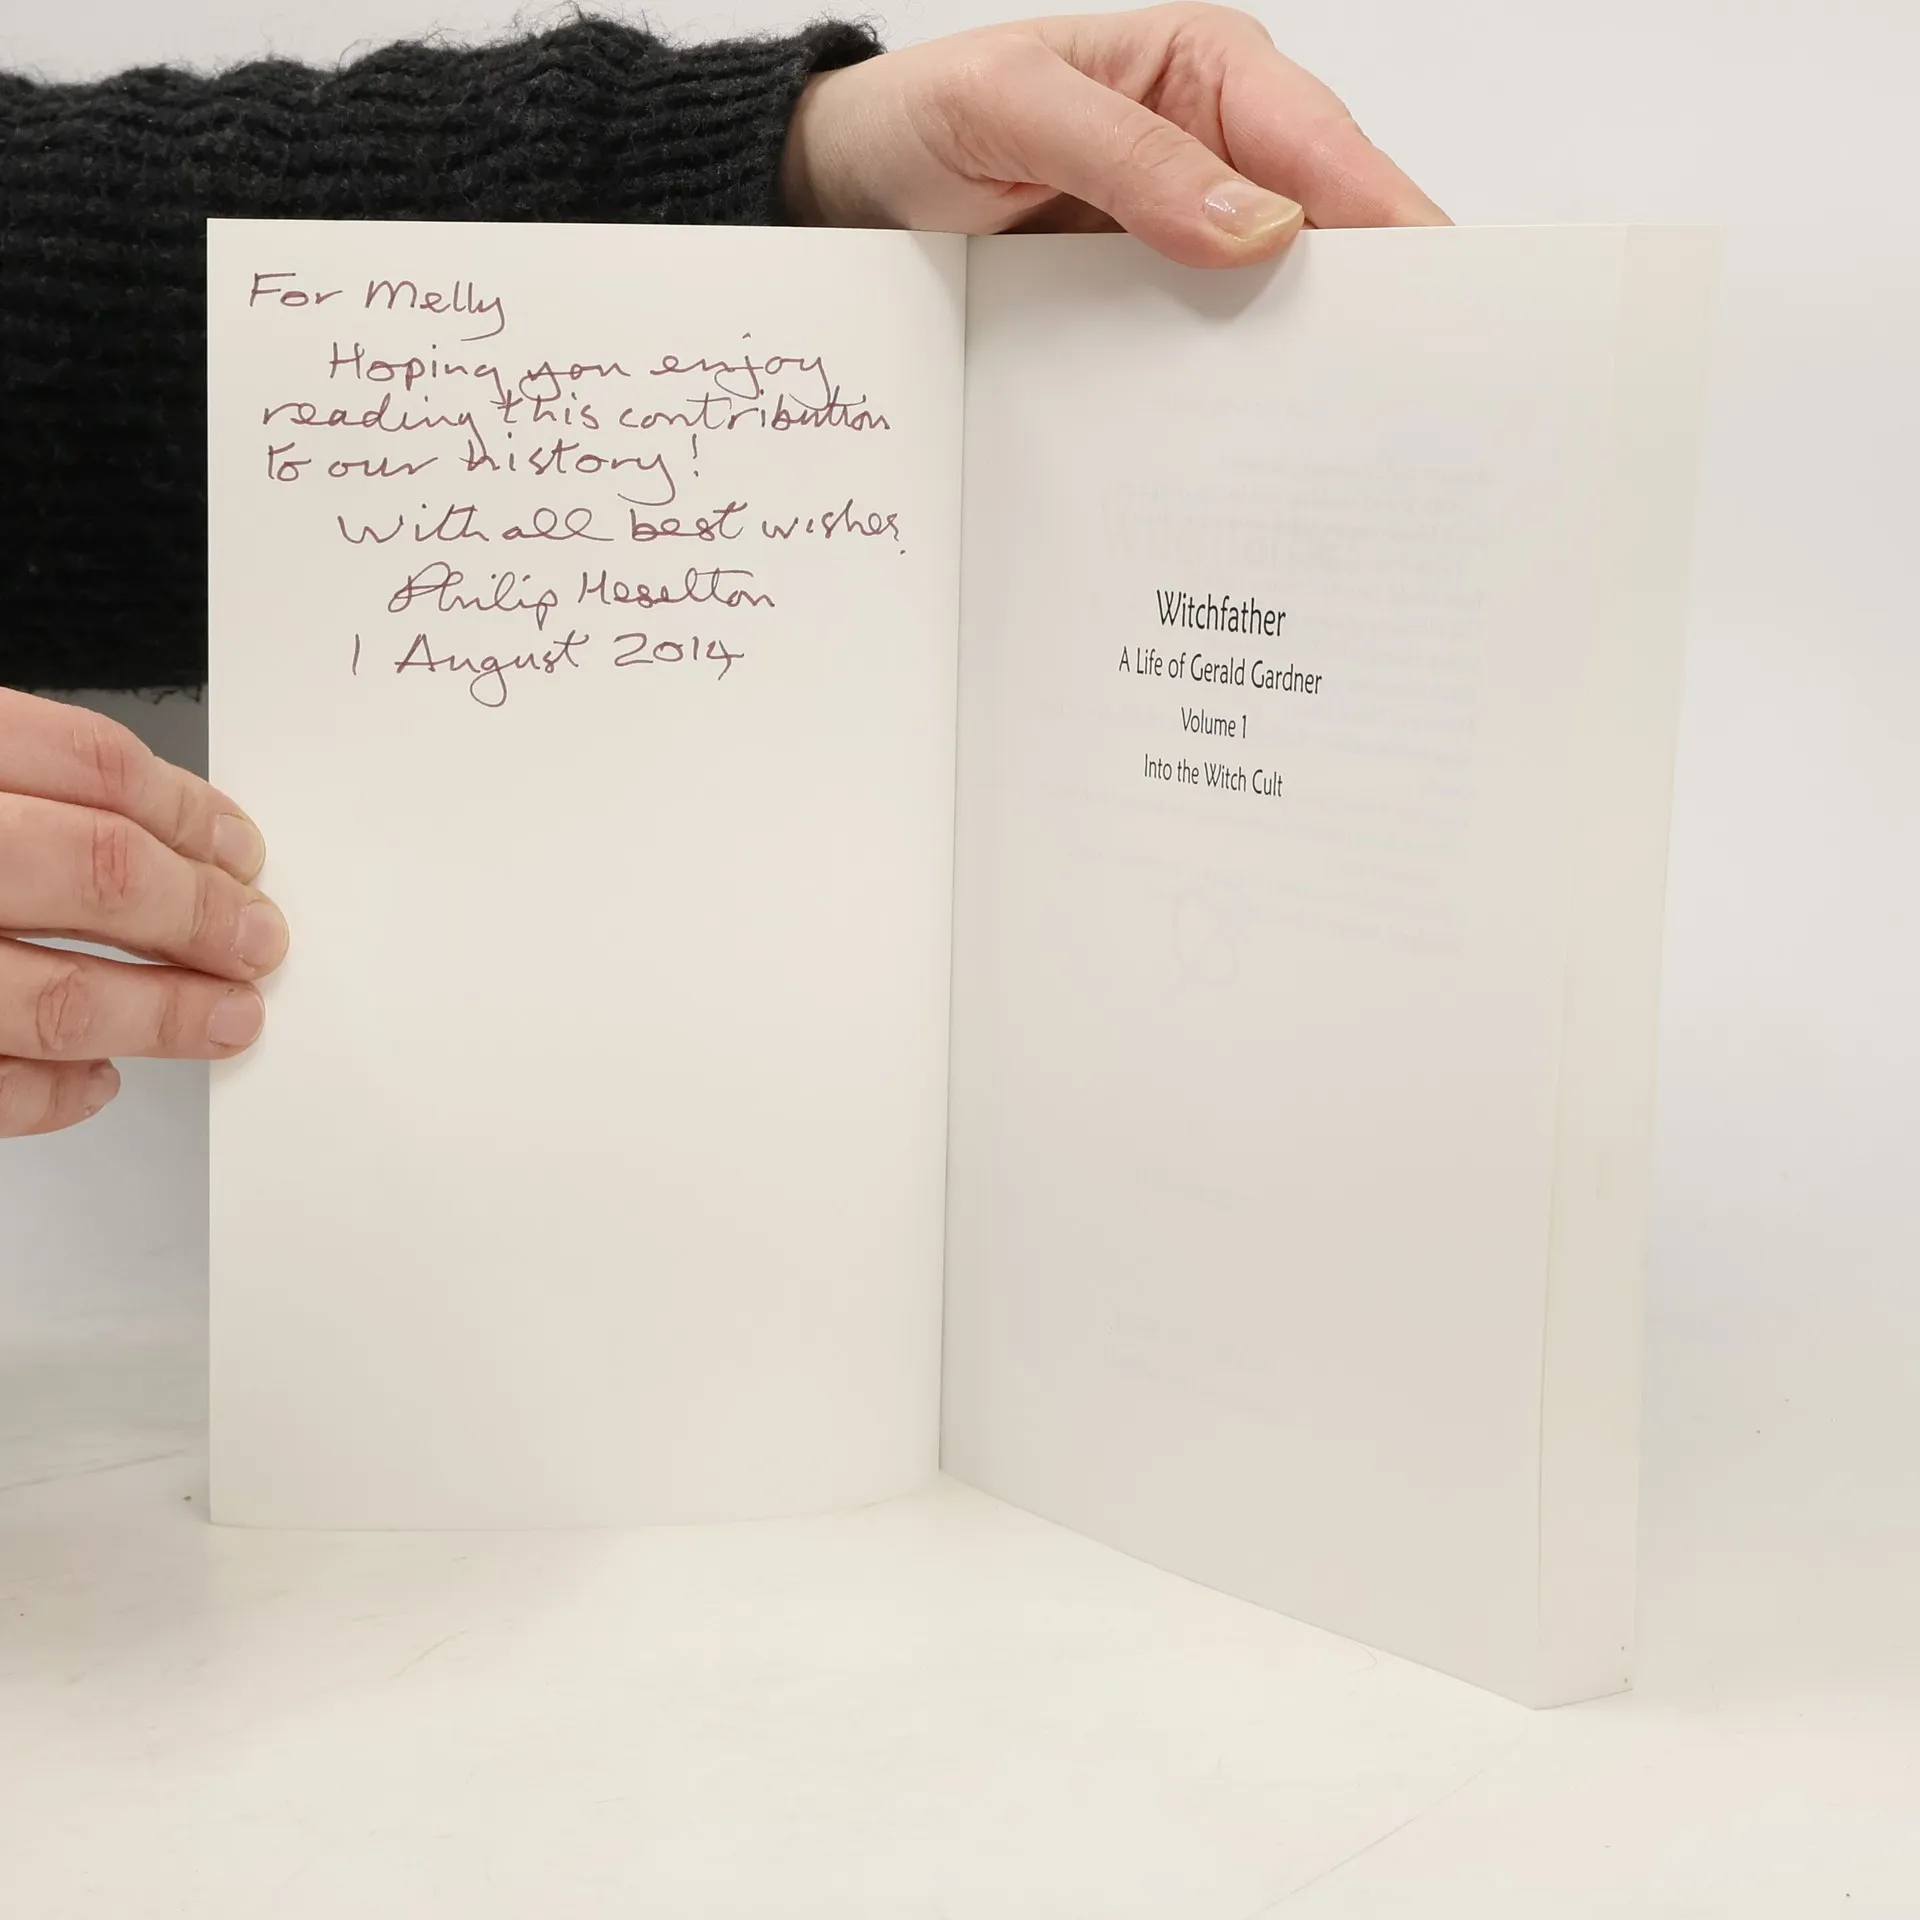 For Melly
Hoping you enjoy
reading this contribution
to our history!
With all best wishes,
Philip Heselton
1 August 2014
Witchfather
A Life of Gerald Gardner
Volume 1
Into the Witch Cult